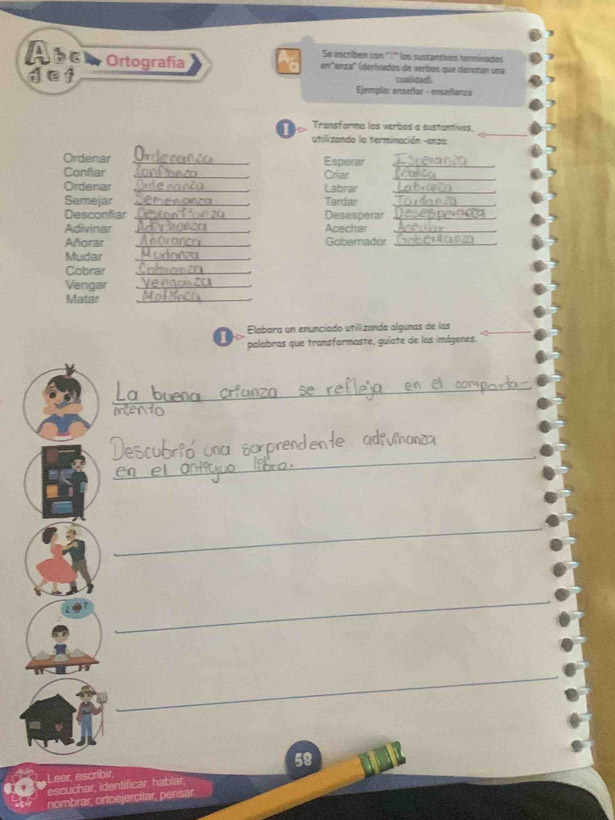 Abc Ortografía
def
Se escriben con "z" los sustantivos terminados
en "anza" (derivados de verbos que denotan una
cualidad).
Ejemplo: enseñar - enseñanza
Transforma los verbos a sustantivos,
utilizando la terminación -anza.
Ordenar Ordenanza
Confiar Confianza
Ordenar Ordenanza
Semejar Semejanza
Desconfiar Desconfianza
Adivinar Adivinanza
Añorar Añoranza
Mudar Mudanza
Cobrar Cobranza
Vengar Venganza
Matar Matanza
Esperar Esperanza
Criar Crianza
Labrar Labranza
Tardar Tardanza
Desesperar
Acechar
Gobernador Gobernanza
Elabora un enunciado utilizando algunas de las
palabras que transformaste, guíate de las imágenes.
La buena crianza se refleja en el comporta-
miento
Descubrió una sorprendente adivinanza
en el antiguo libro.
58
Leer, escribir,
escuchar, identificar, hablar,
nombrar, ortoejercitar, pensar.